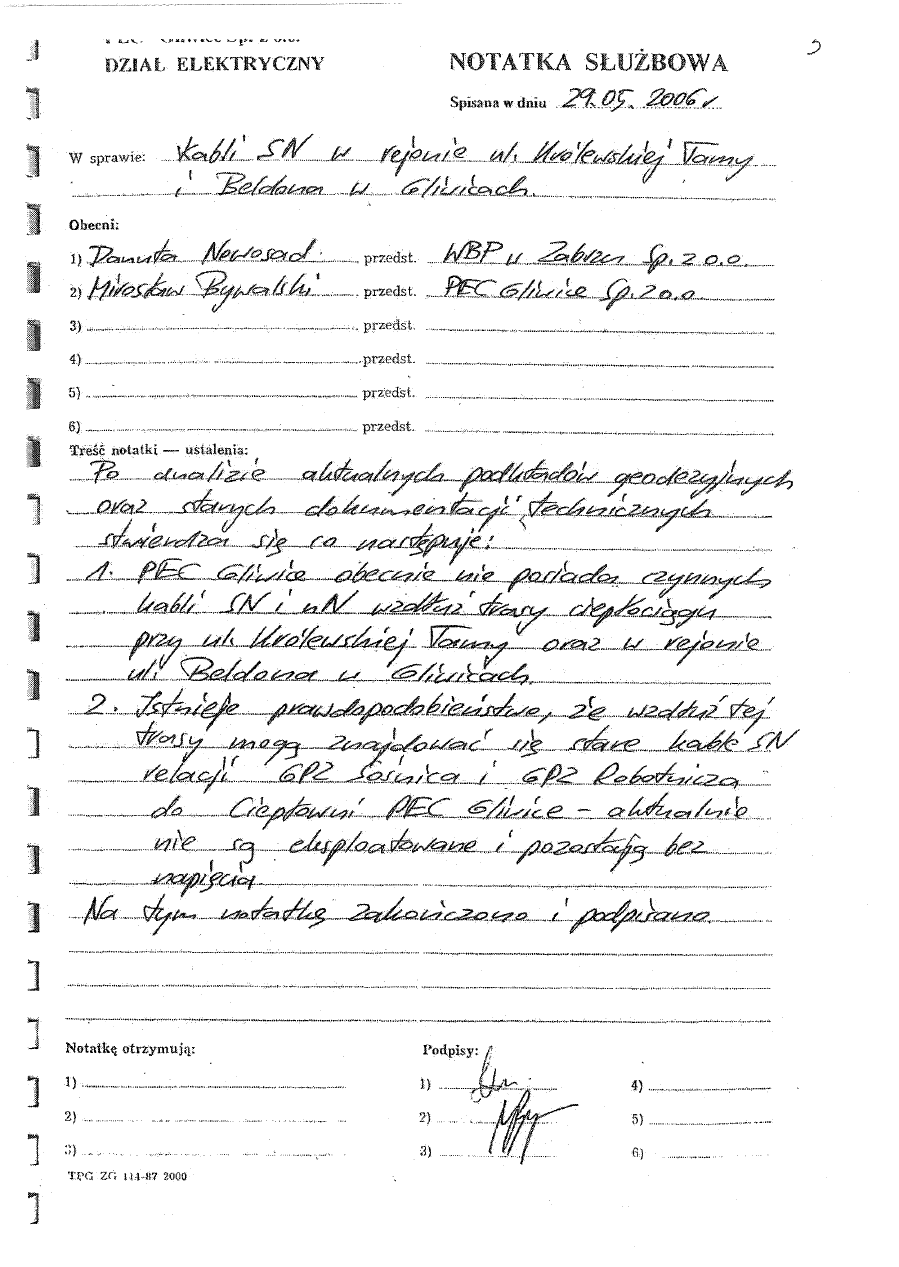 PEC Gliwice Sp. z o.o.
DZIAŁ ELEKTRYCZNY
NOTATKA SŁUŻBOWA
Spisana w dniu 29.05.2006 r
W sprawie: Kabli SN w rejonie ul. Królewskiej Tamy
i Beldona w Gliwicach.
Obecni:
1) Danuta Nowosad przedst. WBP w Zabrzu Sp. z o.o.
2) Mirosław Bywalski przedst. PEC Gliwice Sp. z o.o.
3) przedst.
4) przedst.
5) przedst.
6) przedst.
Treść notatki — ustalenia:
Po analizie aktualnych podkładów geodezyjnych
oraz starych dokumentacji technicznych
stwierdza się co następuje:
1. PEC Gliwice obecnie nie posiada czynnych
kabli SN i nN wzdłuż trasy ciepłociągu
przy ul. Królewskiej Tamy oraz w rejonie
ul. Beldona w Gliwicach.
2. Istnieje prawdopodobieństwo, że wzdłuż tej
trasy mogą znajdować się stare kable SN
relacji GPZ Sośnica i GPZ Robotnicza
do Ciepłowni PEC Gliwice – aktualnie
nie są eksploatowane i pozostają bez
napięcia.
Na tym notatkę zakończono i podpisano.
Notatkę otrzymują:
Podpisy:
1) 1) 4)
2) 2) 5)
3) 3) 6)
TPG ZG 114-87 2000